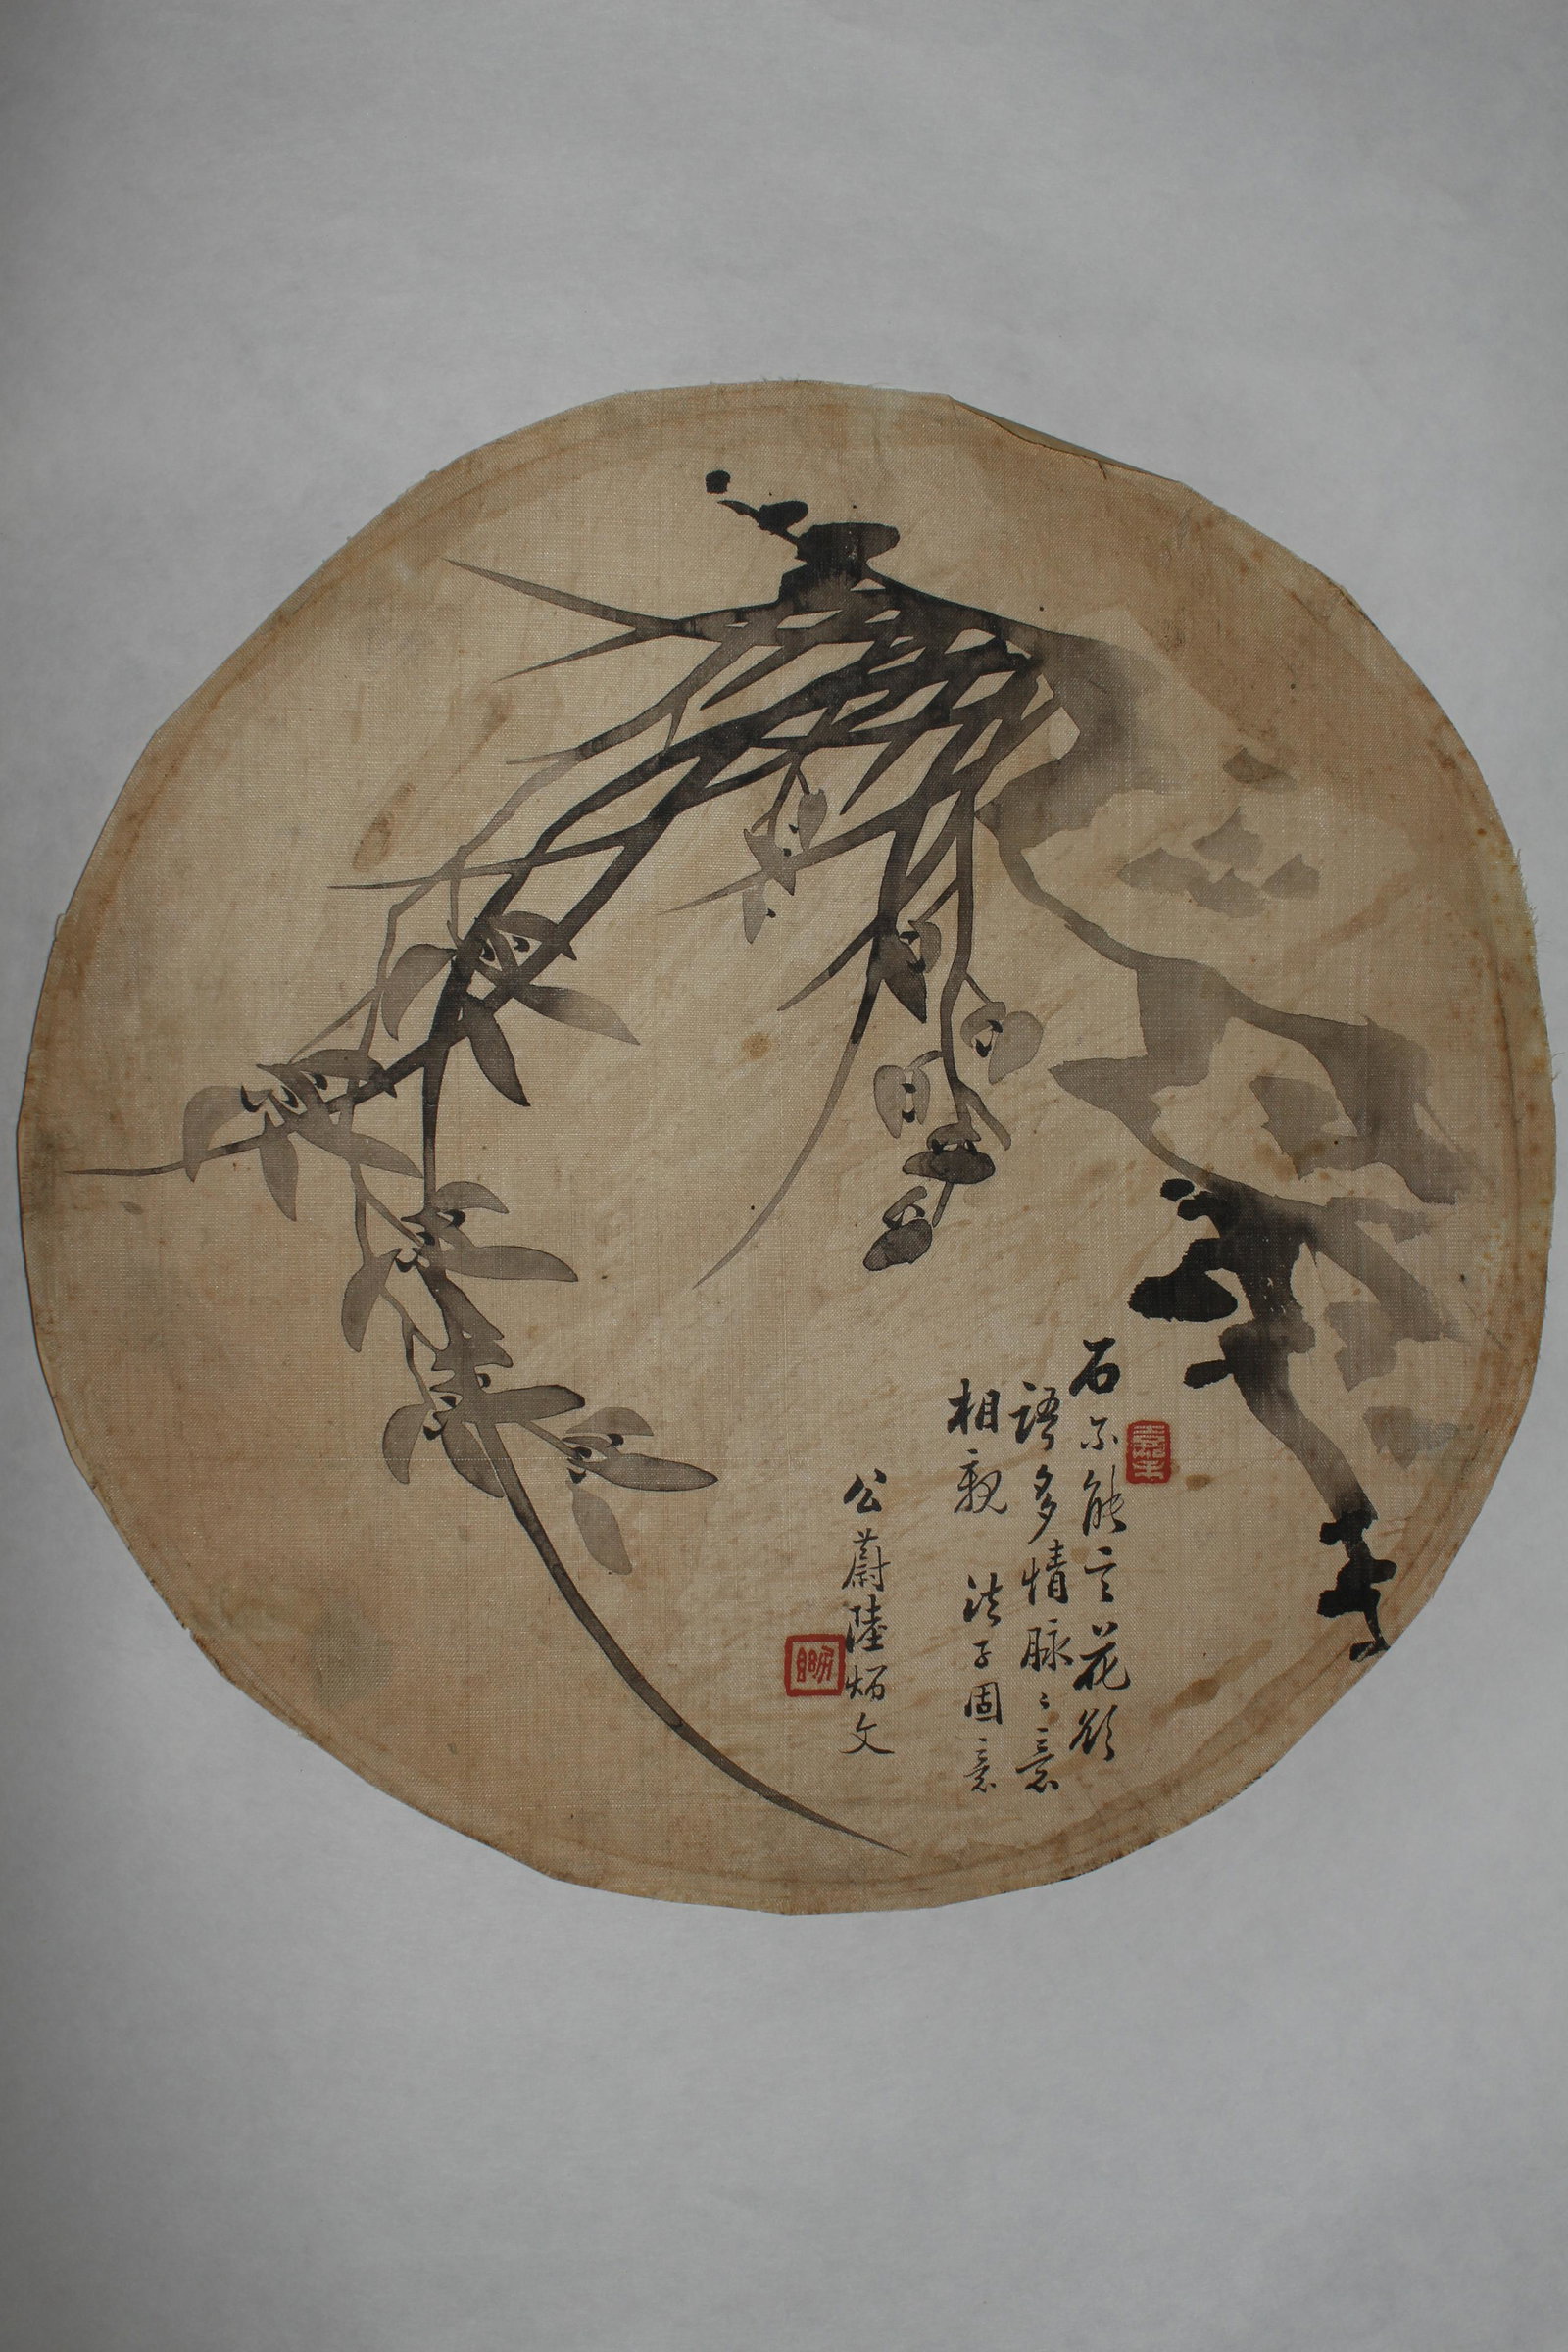 石不能言花欲
語多情脉〻意
相親 法子固意
公蔚陸炳文